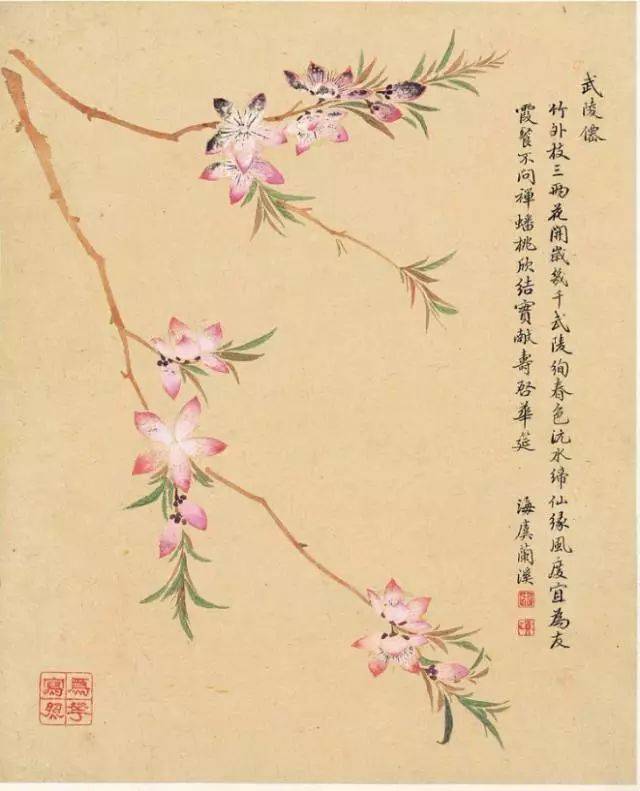 武陵僊
竹外枝三兩花開嵗幾千武陵絢春色沅水締仙緣風度宜為友
霞餐不問禪蟠桃欣結實献壽啓華筵
海虞蘭溪
爲花
寫照